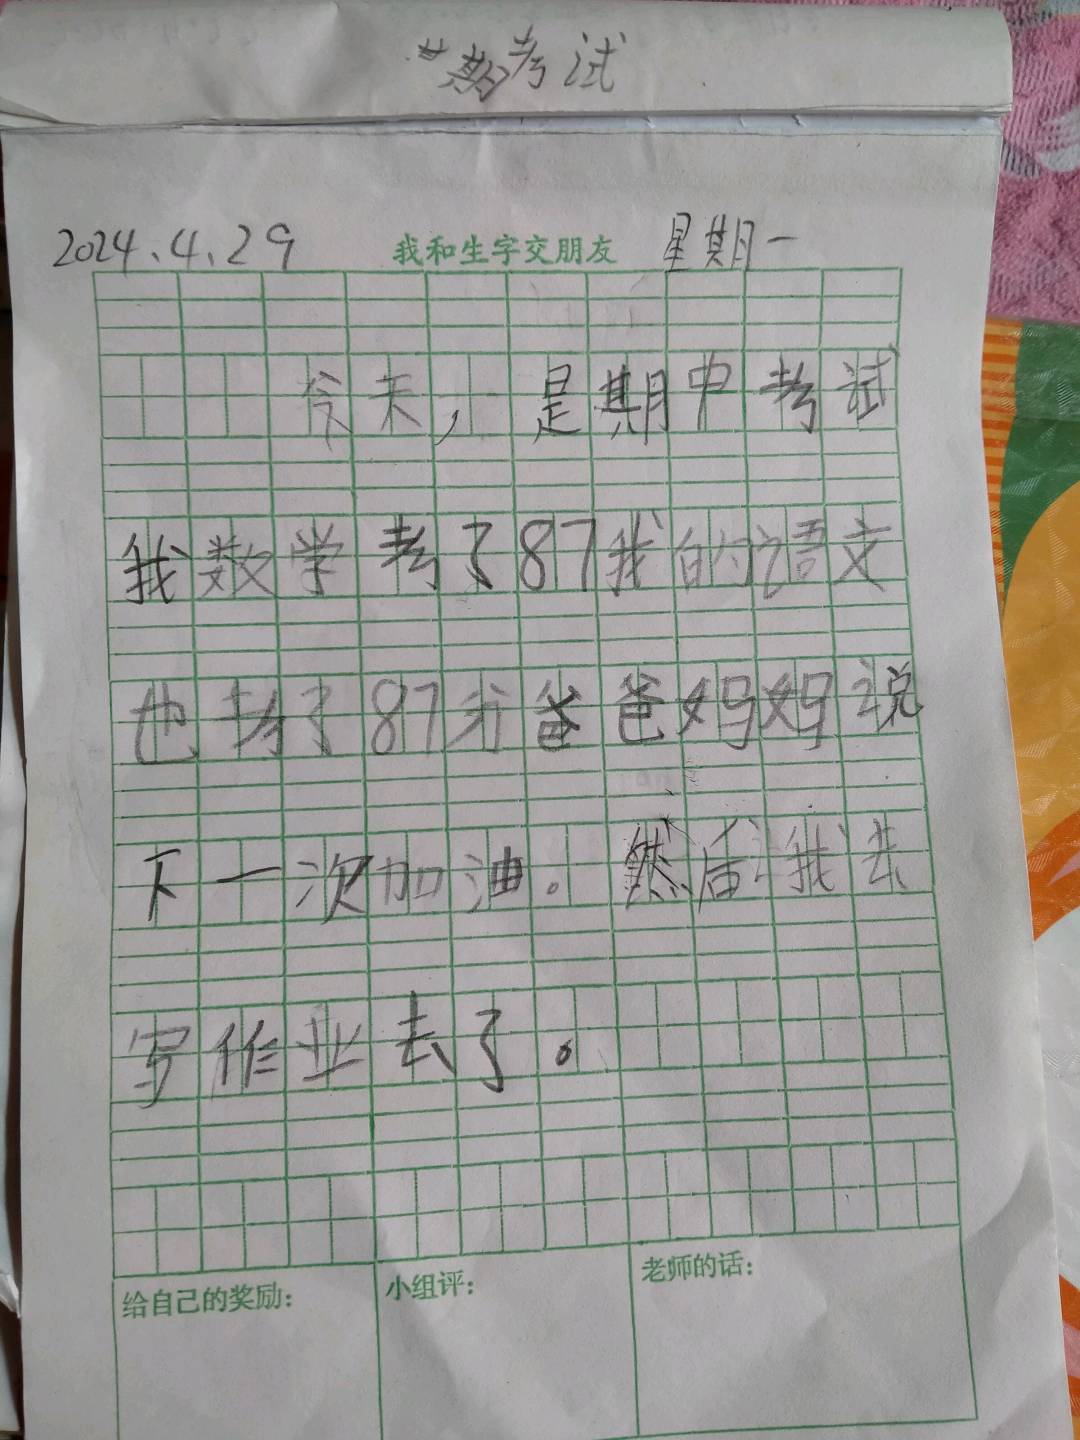 期考试
2024.4.29 我和生字交朋友 星期一
今天，是期中考试
我数学考了87我的语文
也考了87分爸爸妈妈说
下一次加油。然后我去
写作业去了。
给自己的奖励： 小组评： 老师的话：